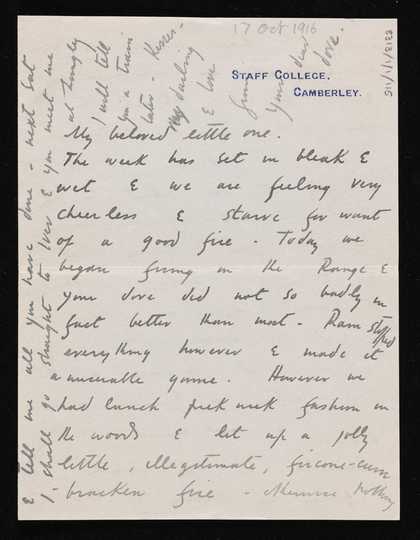 17 Oct 1916
STAFF COLLEGE,
CAMBERLEY.
My beloved little one.
The week has set in bleak &
wet & we are feeling very
cheerless & starve for want
of a good fire. Today we
began firing on the Range &
your dove did not so badly in
fact better than most. Rain stopped
everything however & made it
a miserable game. However we
had lunch pick nick fashion in
the woods & lit up a jolly
little, illegitimate, fircone-cum
bracken fire - otherwise nothing
& tell me all you have done - next Sat
I shall go straight to & you meet me
at Langley
I will tell
you a train
later. Kisses.
My darling
& love
from
your
dove.